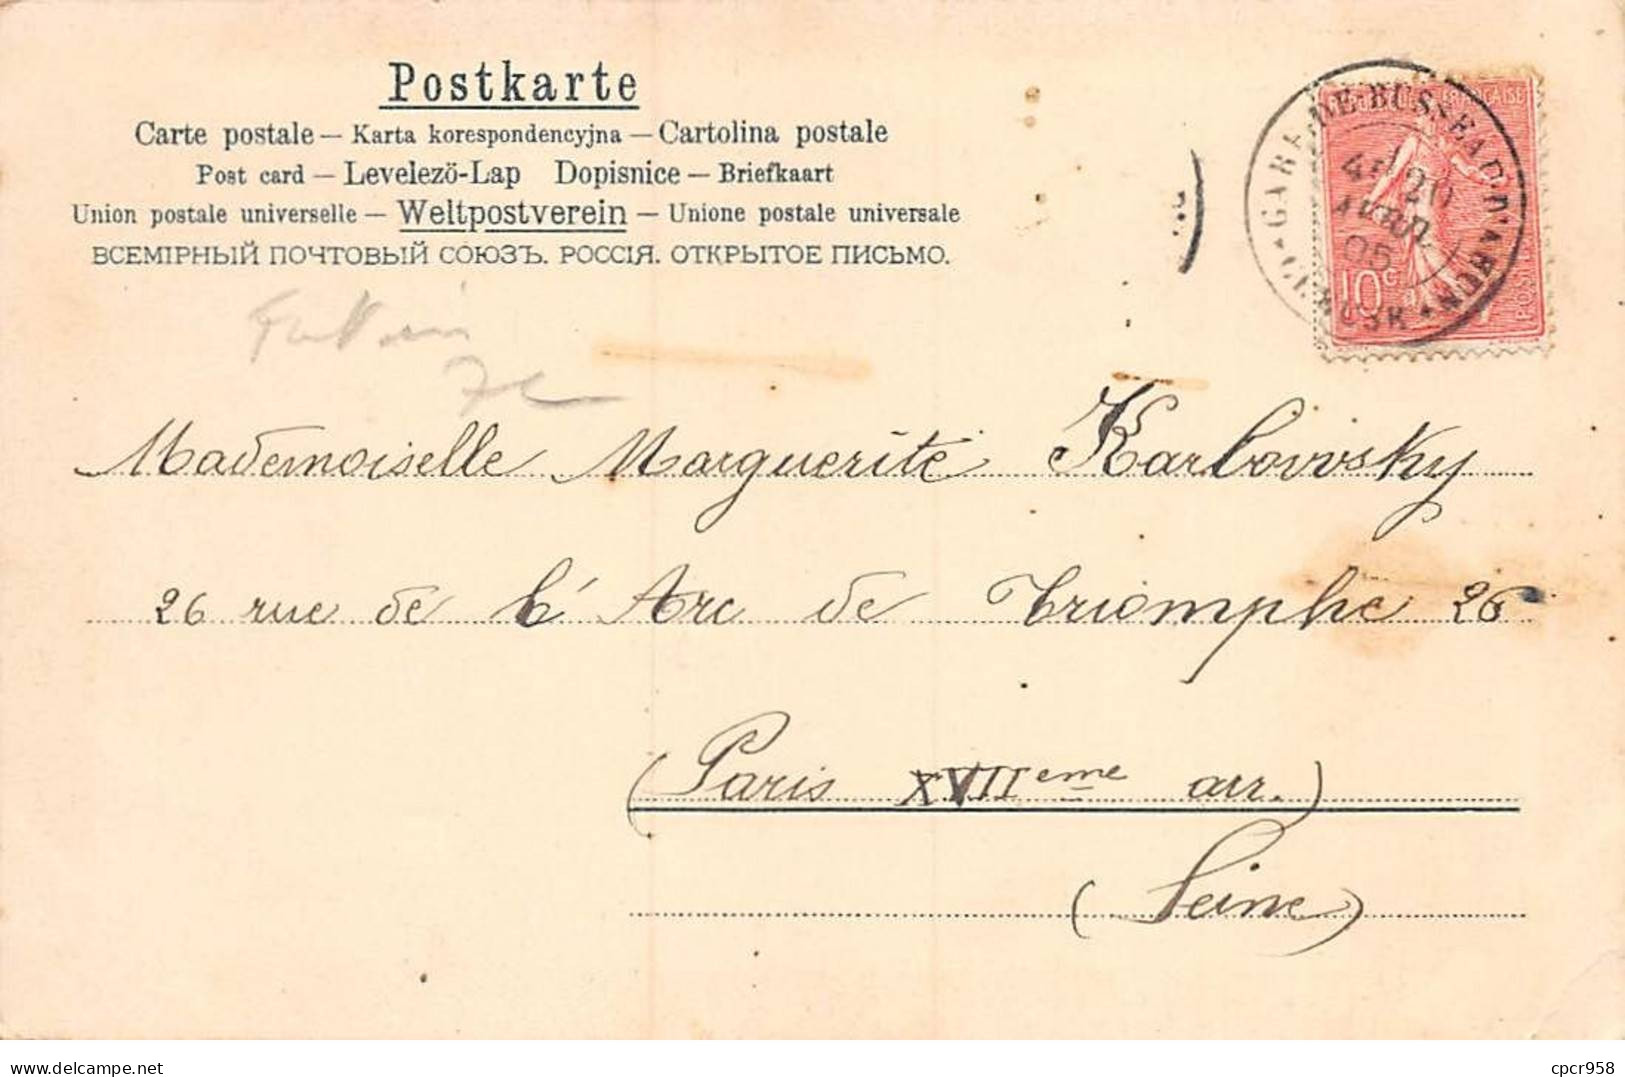 Postkarte
Carte postale — Karta korespondencyjna — Cartolina postale
Post card — Levelezö-Lap Dopisnice — Briefkaart
Union postale universelle — Weltpostverein — Unione postale universale
ВСЕМІРНЫЙ ПОЧТОВЫЙ СОЮЗЪ. РОССІЯ. ОТКРЫТОЕ ПИСЬМО.
GARE DE BUSSEAU D'AHUN
20
05
CREUSE
10c
Mademoiselle Marguerite Karlowsky
26 rue de l'Arc de Triomphe 26
(Paris XVIIeme arr.)
(Seine)
delcampe.net
cpcr958